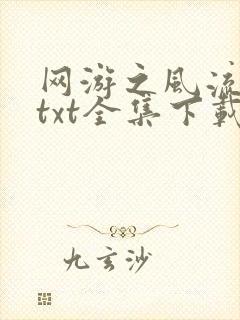 网游之风流
txt全集下载
九玄沙